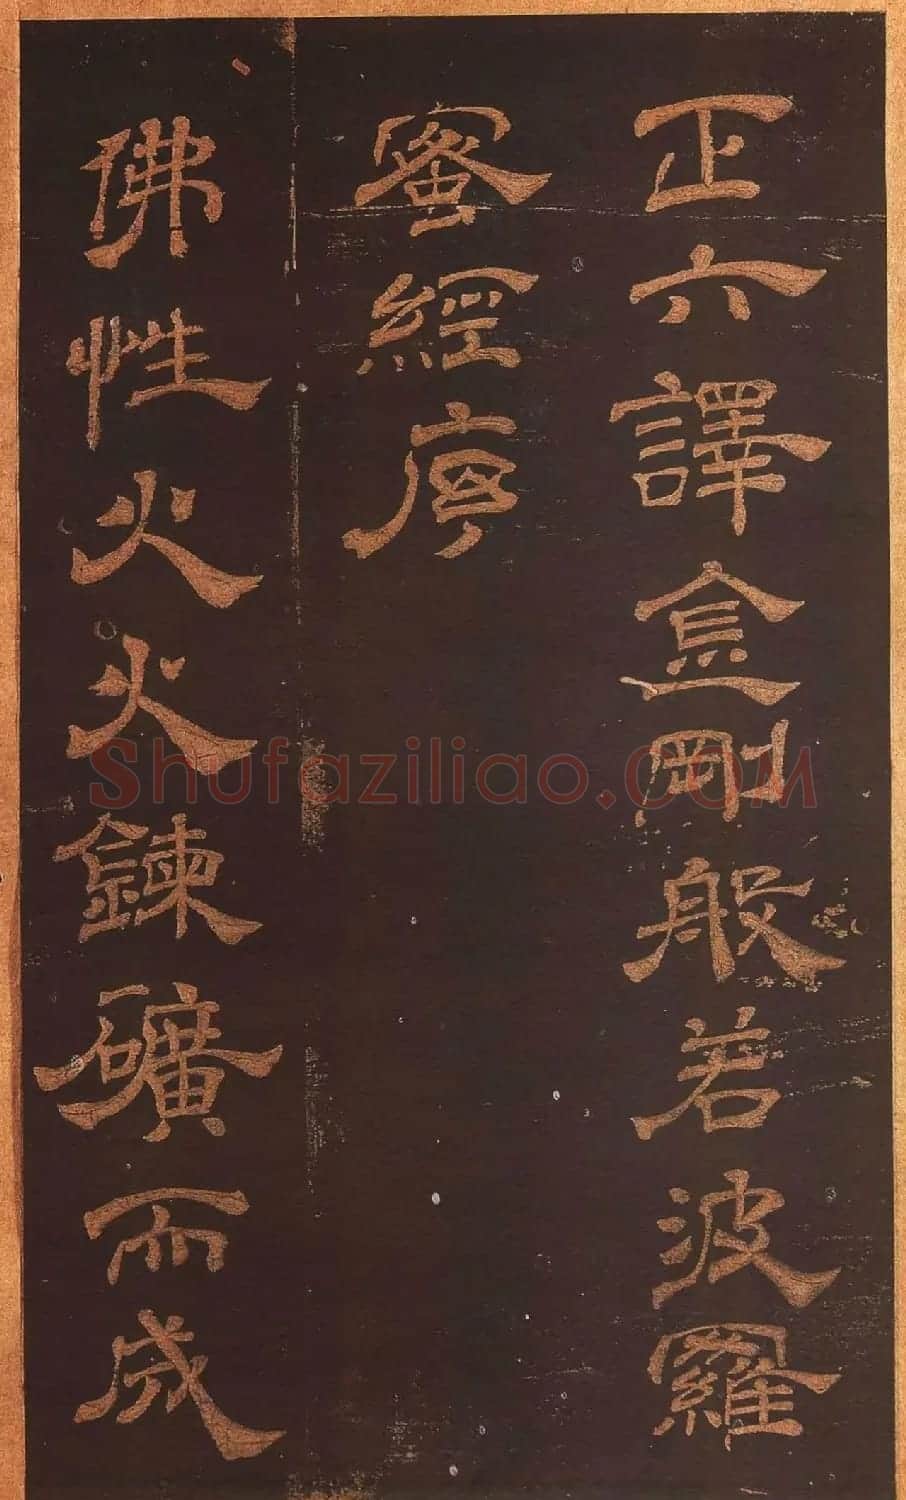 正六譯金剛般若波羅
蜜經序
佛性火火鍊礦而成
Shufaziliao.COM